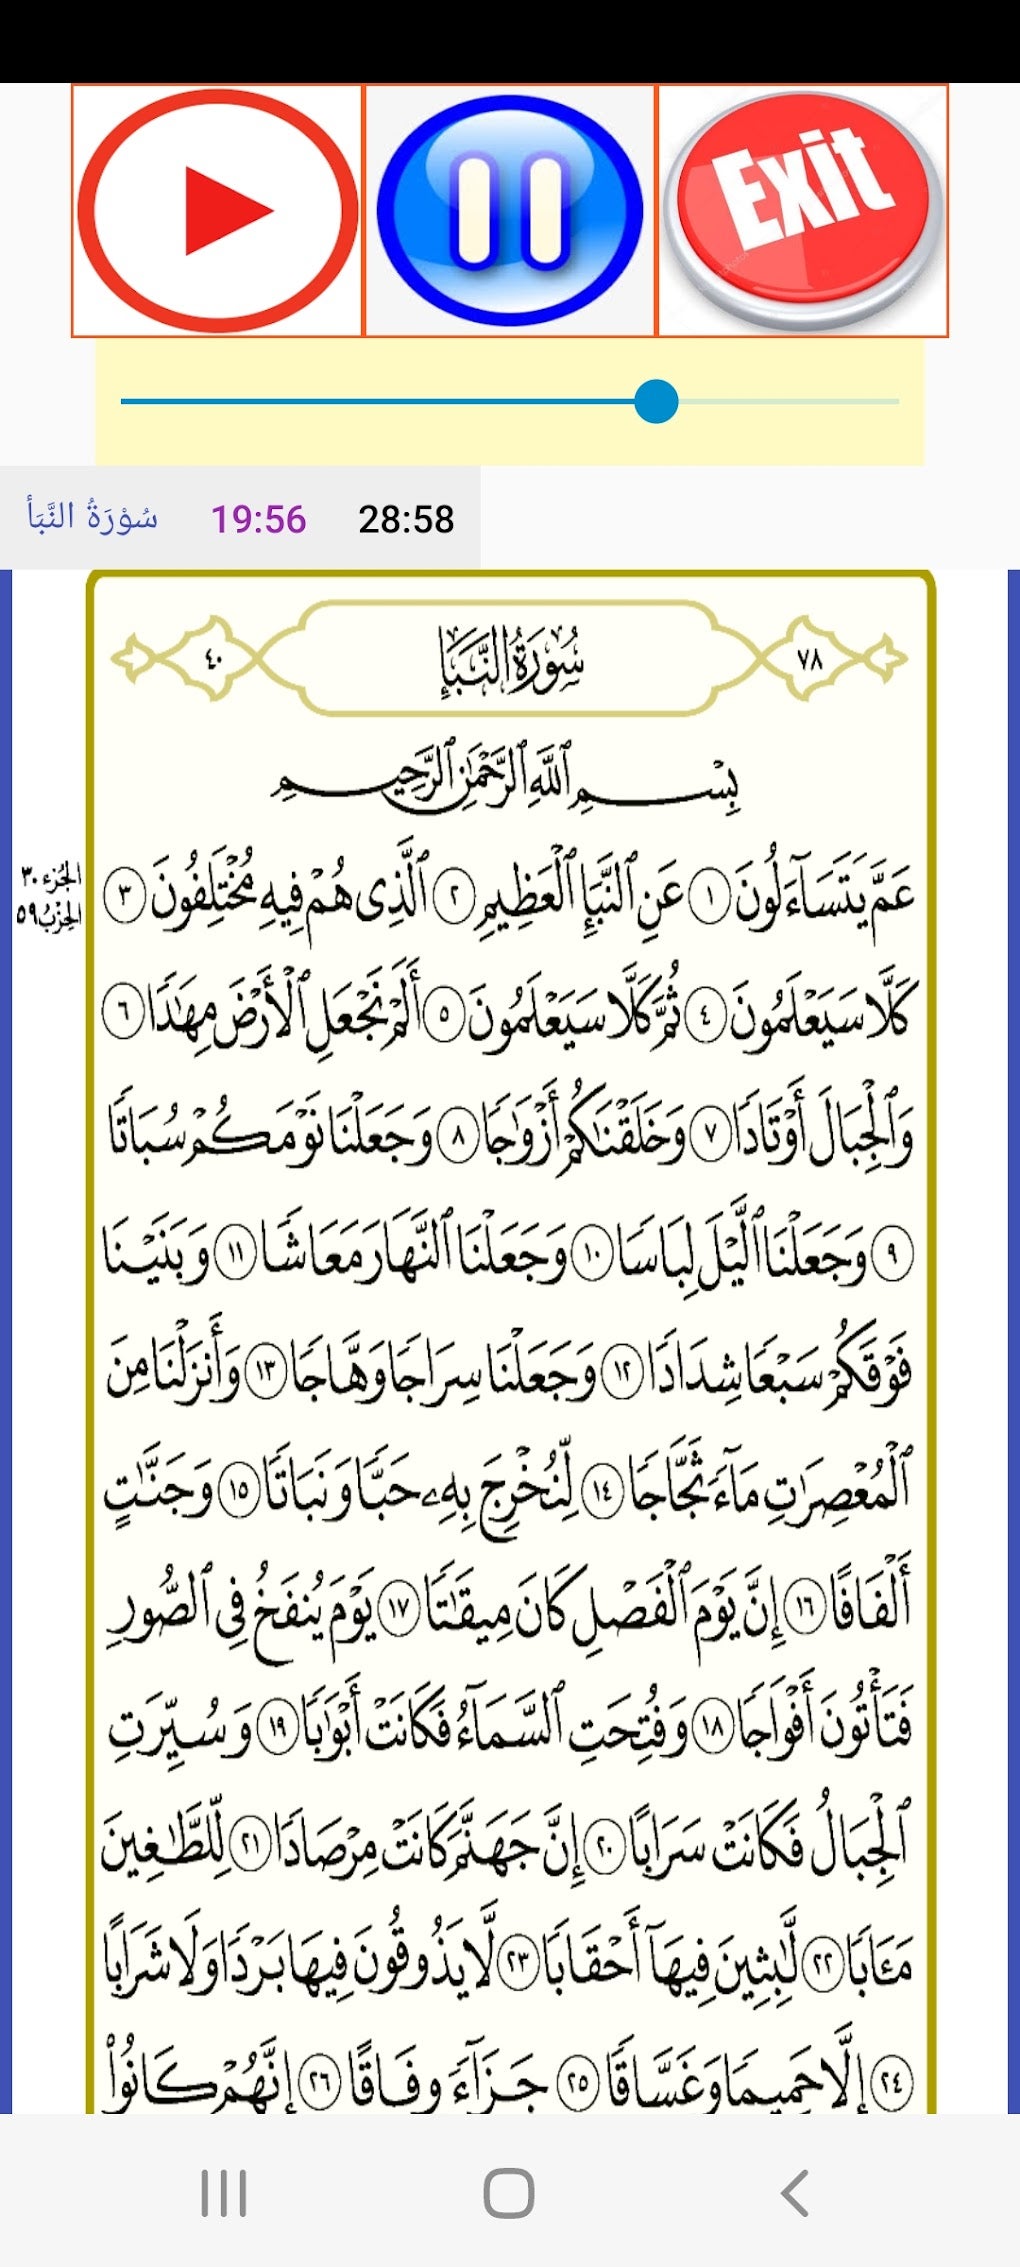 Exit
سُوْرَةُ النَّبَأ 19:56 28:58
٧٨ سُورَةُ النَّبَإِ ٤٠
بِسْمِ ٱللَّهِ ٱلرَّحْمَٰنِ ٱلرَّحِيمِ
الجُزء ٣٠
الحِزْبُ ٥٩
عَمَّ يَتَسَآءَلُونَ ١ عَنِ ٱلنَّبَإِ ٱلْعَظِيمِ ٢ ٱلَّذِى هُمْ فِيهِ مُخْتَلِفُونَ ٣
كَلَّا سَيَعْلَمُونَ ٤ ثُمَّ كَلَّا سَيَعْلَمُونَ ٥ أَلَمْ نَجْعَلِ ٱلْأَرْضَ مِهَٰدًا ٦
وَٱلْجِبَالَ أَوْتَادًا ٧ وَخَلَقْنَٰكُمْ أَزْوَٰجًا ٨ وَجَعَلْنَا نَوْمَكُمْ سُبَاتًا
٩ وَجَعَلْنَا ٱلَّيْلَ لِبَاسًا ١٠ وَجَعَلْنَا ٱلنَّهَارَ مَعَاشًا ١١ وَبَنَيْنَا
فَوْقَكُمْ سَبْعًا شِدَادًا ١٢ وَجَعَلْنَا سِرَاجًا وَهَّاجًا ١٣ وَأَنزَلْنَا مِنَ
ٱلْمُعْصِرَٰتِ مَآءً ثَجَّاجًا ١٤ لِّنُخْرِجَ بِهِۦ حَبًّا وَنَبَاتًا ١٥ وَجَنَّٰتٍ
أَلْفَافًا ١٦ إِنَّ يَوْمَ ٱلْفَصْلِ كَانَ مِيقَٰتًا ١٧ يَوْمَ يُنفَخُ فِى ٱلصُّورِ
فَتَأْتُونَ أَفْوَاجًا ١٨ وَفُتِحَتِ ٱلسَّمَآءُ فَكَانَتْ أَبْوَٰبًا ١٩ وَسُيِّرَتِ
ٱلْجِبَالُ فَكَانَتْ سَرَابًا ٢٠ إِنَّ جَهَنَّمَ كَانَتْ مِرْصَادًا ٢١ لِّلطَّٰغِينَ
مَـَٔابًا ٢٢ لَّٰبِثِينَ فِيهَآ أَحْقَابًا ٢٣ لَّا يَذُوقُونَ فِيهَا بَرْدًا وَلَا شَرَابًا
٢٤ إِلَّا حَمِيمًا وَغَسَّاقًا ٢٥ جَزَآءً وِفَاقًا ٢٦ إِنَّهُمْ كَانُوا۟